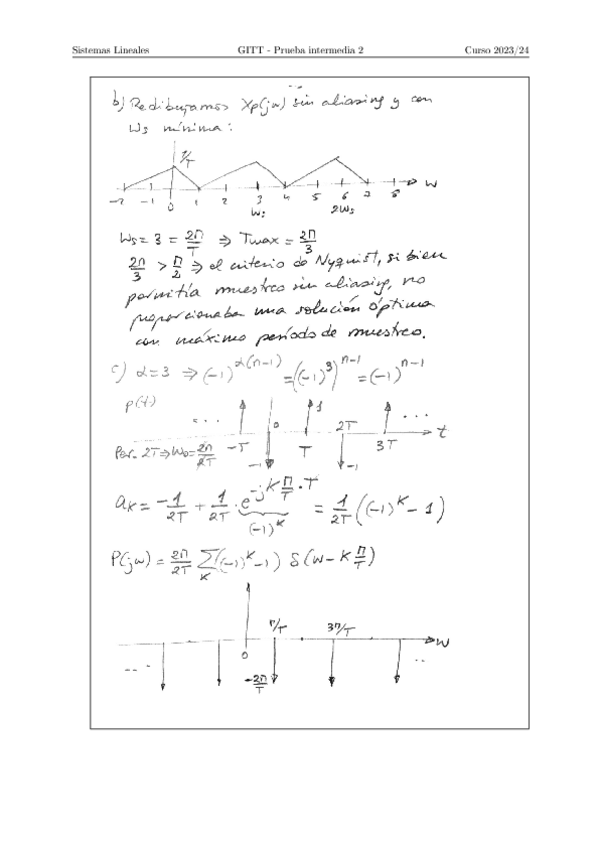 Sistemas Lineales GITT - Prueba intermedia 2 Curso 2023/24
b) Redibujamos Xp(jω) sin aliasing y con
ωs mínima:
1/T
-2 -1 0 1 2 3 4 5 6 7 8 ω
ωs 2ωs
ωs = 3 = 2π/T ⇒ Tmax = 2π/3
2π/3 > π/2 ⇒ el criterio de Nyquist, si bien
permitía muestreo sin aliasing, no
proporcionaba una solución óptima
con máximo período de muestreo.
c) α=3 ⇒ (-1)^α(n-1) = ((-1)^3)^n-1 = (-1)^n-1
p(t)
... 0 1 2T ...
Per. 2T ⇒ ω0 = 2π/2T -T -1 T -1 3T t
aK = -1/2T + 1/2T · e^-jKπ/T·T = 1/2T ((-1)^K - 1)
(-1)^K
P(jω) = 2π/2T Σ_K ((-1)^K - 1) δ(ω - K π/T)
π/T 3π/T ω
0
... -2π/T ..